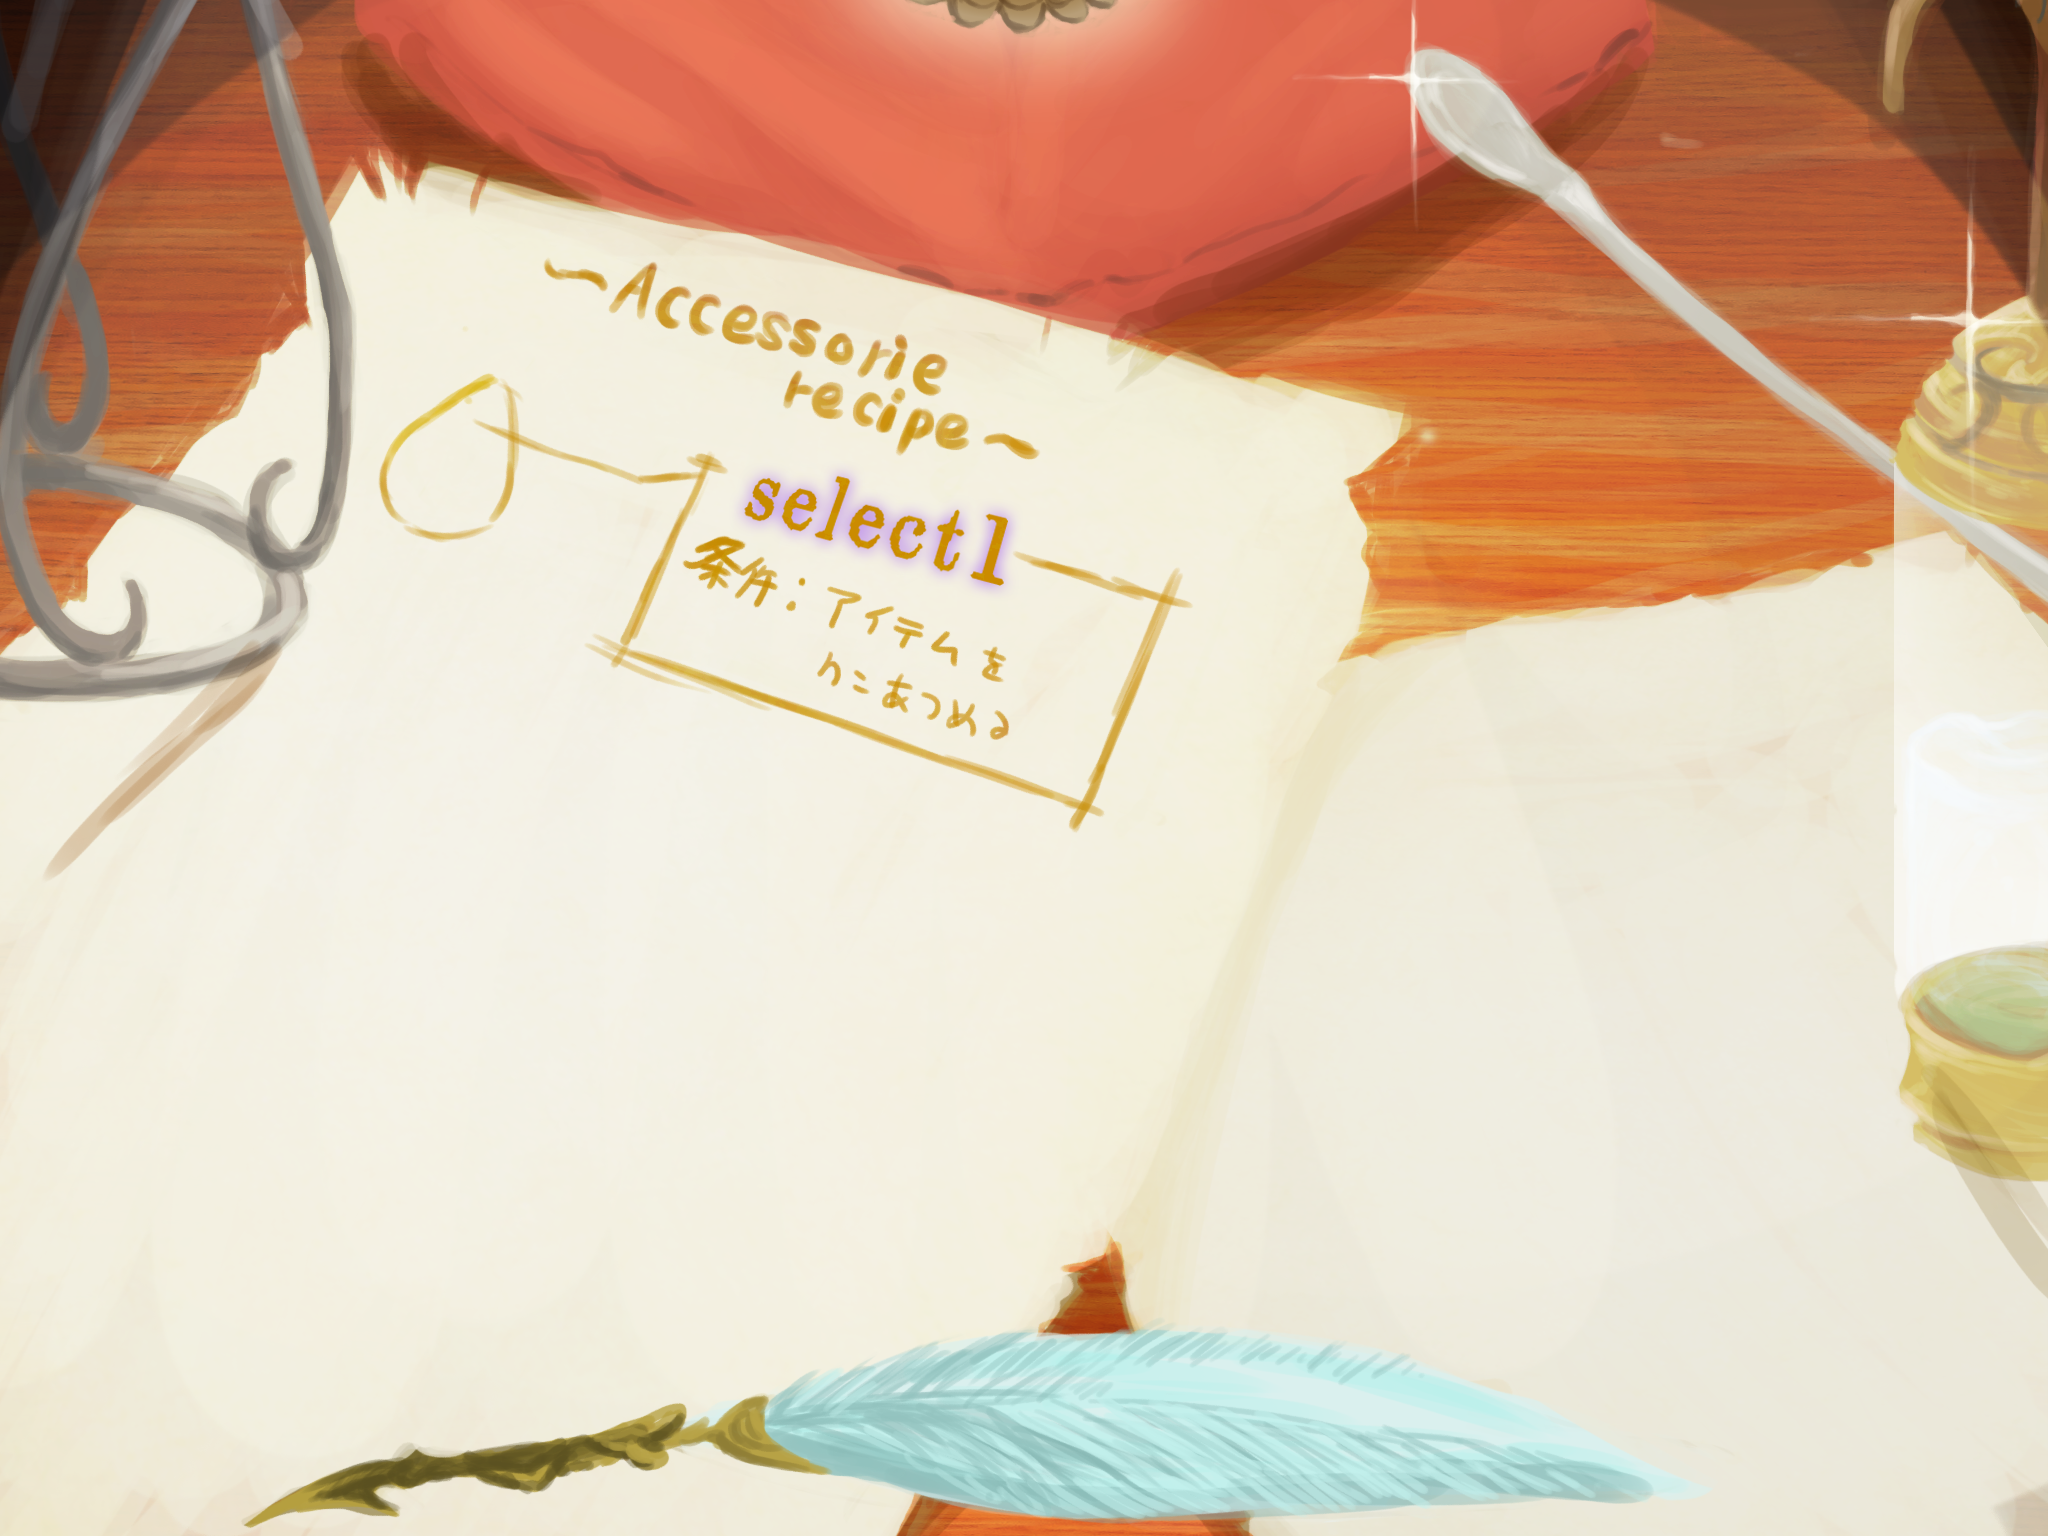 ～Accessorie
recipe～
select1
条件：アイテムを
hこあつめる